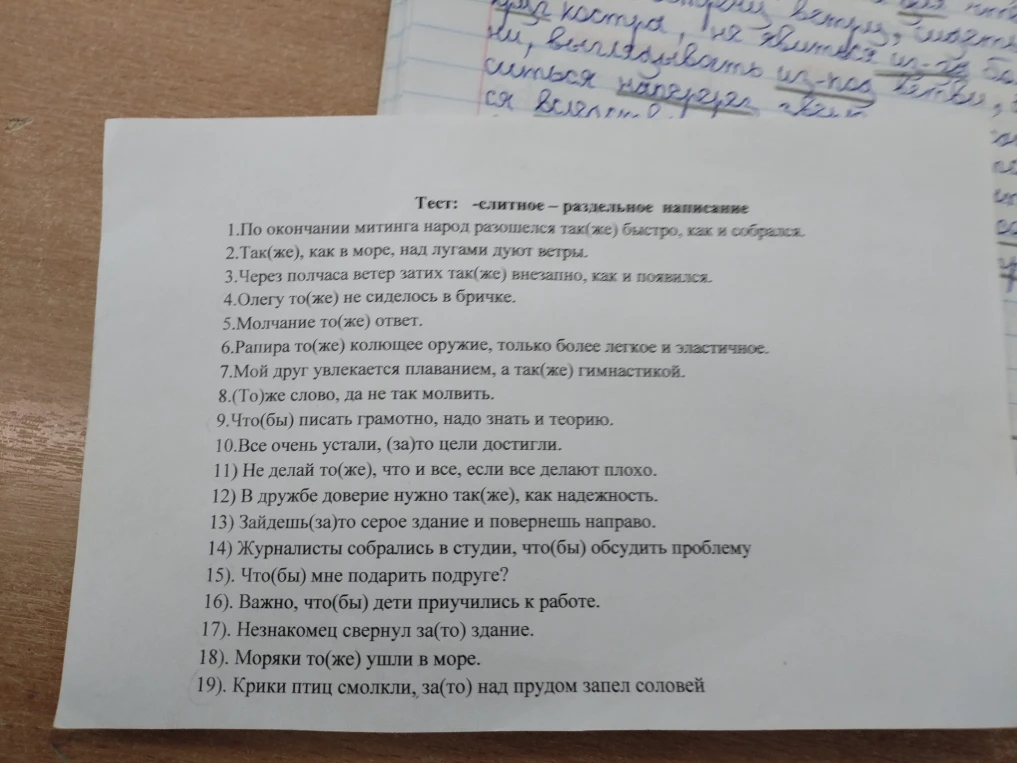 костра, не явиться из-за
ни, выглядывать из-под ветви,
ся
Тест: -слитное – раздельное написание
1.По окончании митинга народ разошелся так(же) быстро, как и собрался.
2.Так(же), как в море, над лугами дуют ветры.
3.Через полчаса ветер затих так(же) внезапно, как и появился.
4.Олегу то(же) не сиделось в бричке.
5.Молчание то(же) ответ.
6.Рапира то(же) колющее оружие, только более легкое и эластичное.
7.Мой друг увлекается плаванием, а так(же) гимнастикой.
8.(То)же слово, да не так молвить.
9.Что(бы) писать грамотно, надо знать и теорию.
10.Все очень устали, (за)то цели достигли.
11) Не делай то(же), что и все, если все делают плохо.
12) В дружбе доверие нужно так(же), как надежность.
13) Зайдешь(за)то серое здание и повернешь направо.
14) Журналисты собрались в студии, что(бы) обсудить проблему
15). Что(бы) мне подарить подруге?
16). Важно, что(бы) дети приучились к работе.
17). Незнакомец свернул за(то) здание.
18). Моряки то(же) ушли в море.
19). Крики птиц смолкли, за(то) над прудом запел соловей